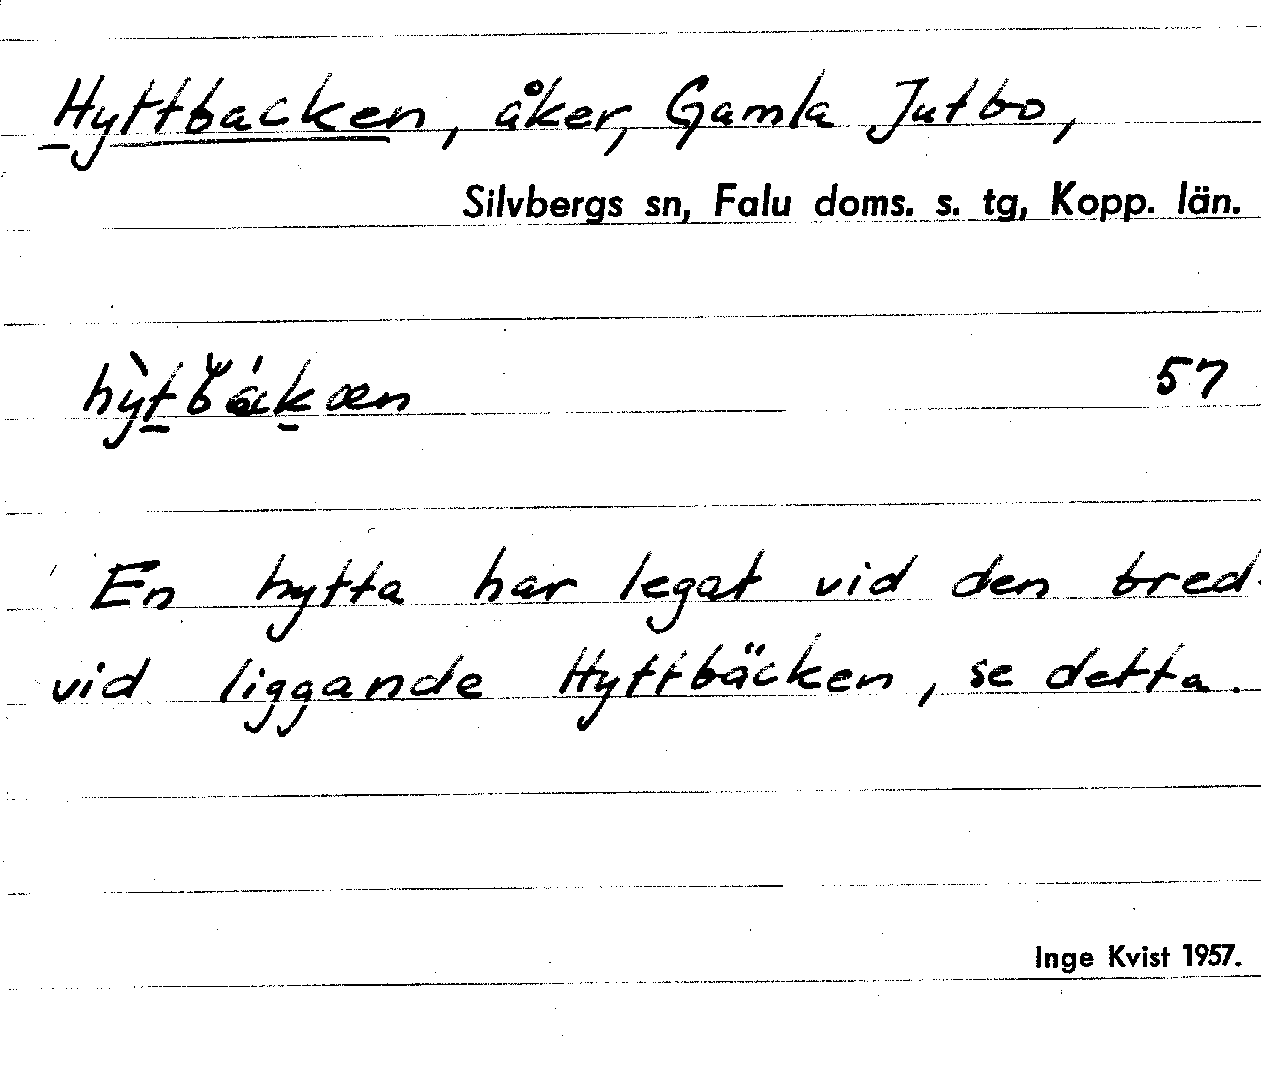 Hyttbacken, åker, Gamla Jutbo,
Silvbergs sn, Falu doms. s. tg, Kopp. län.
57
En hytta har legat vid den bred-
vid liggande Hyttbäcken, se detta.
Inge Kvist 1957.